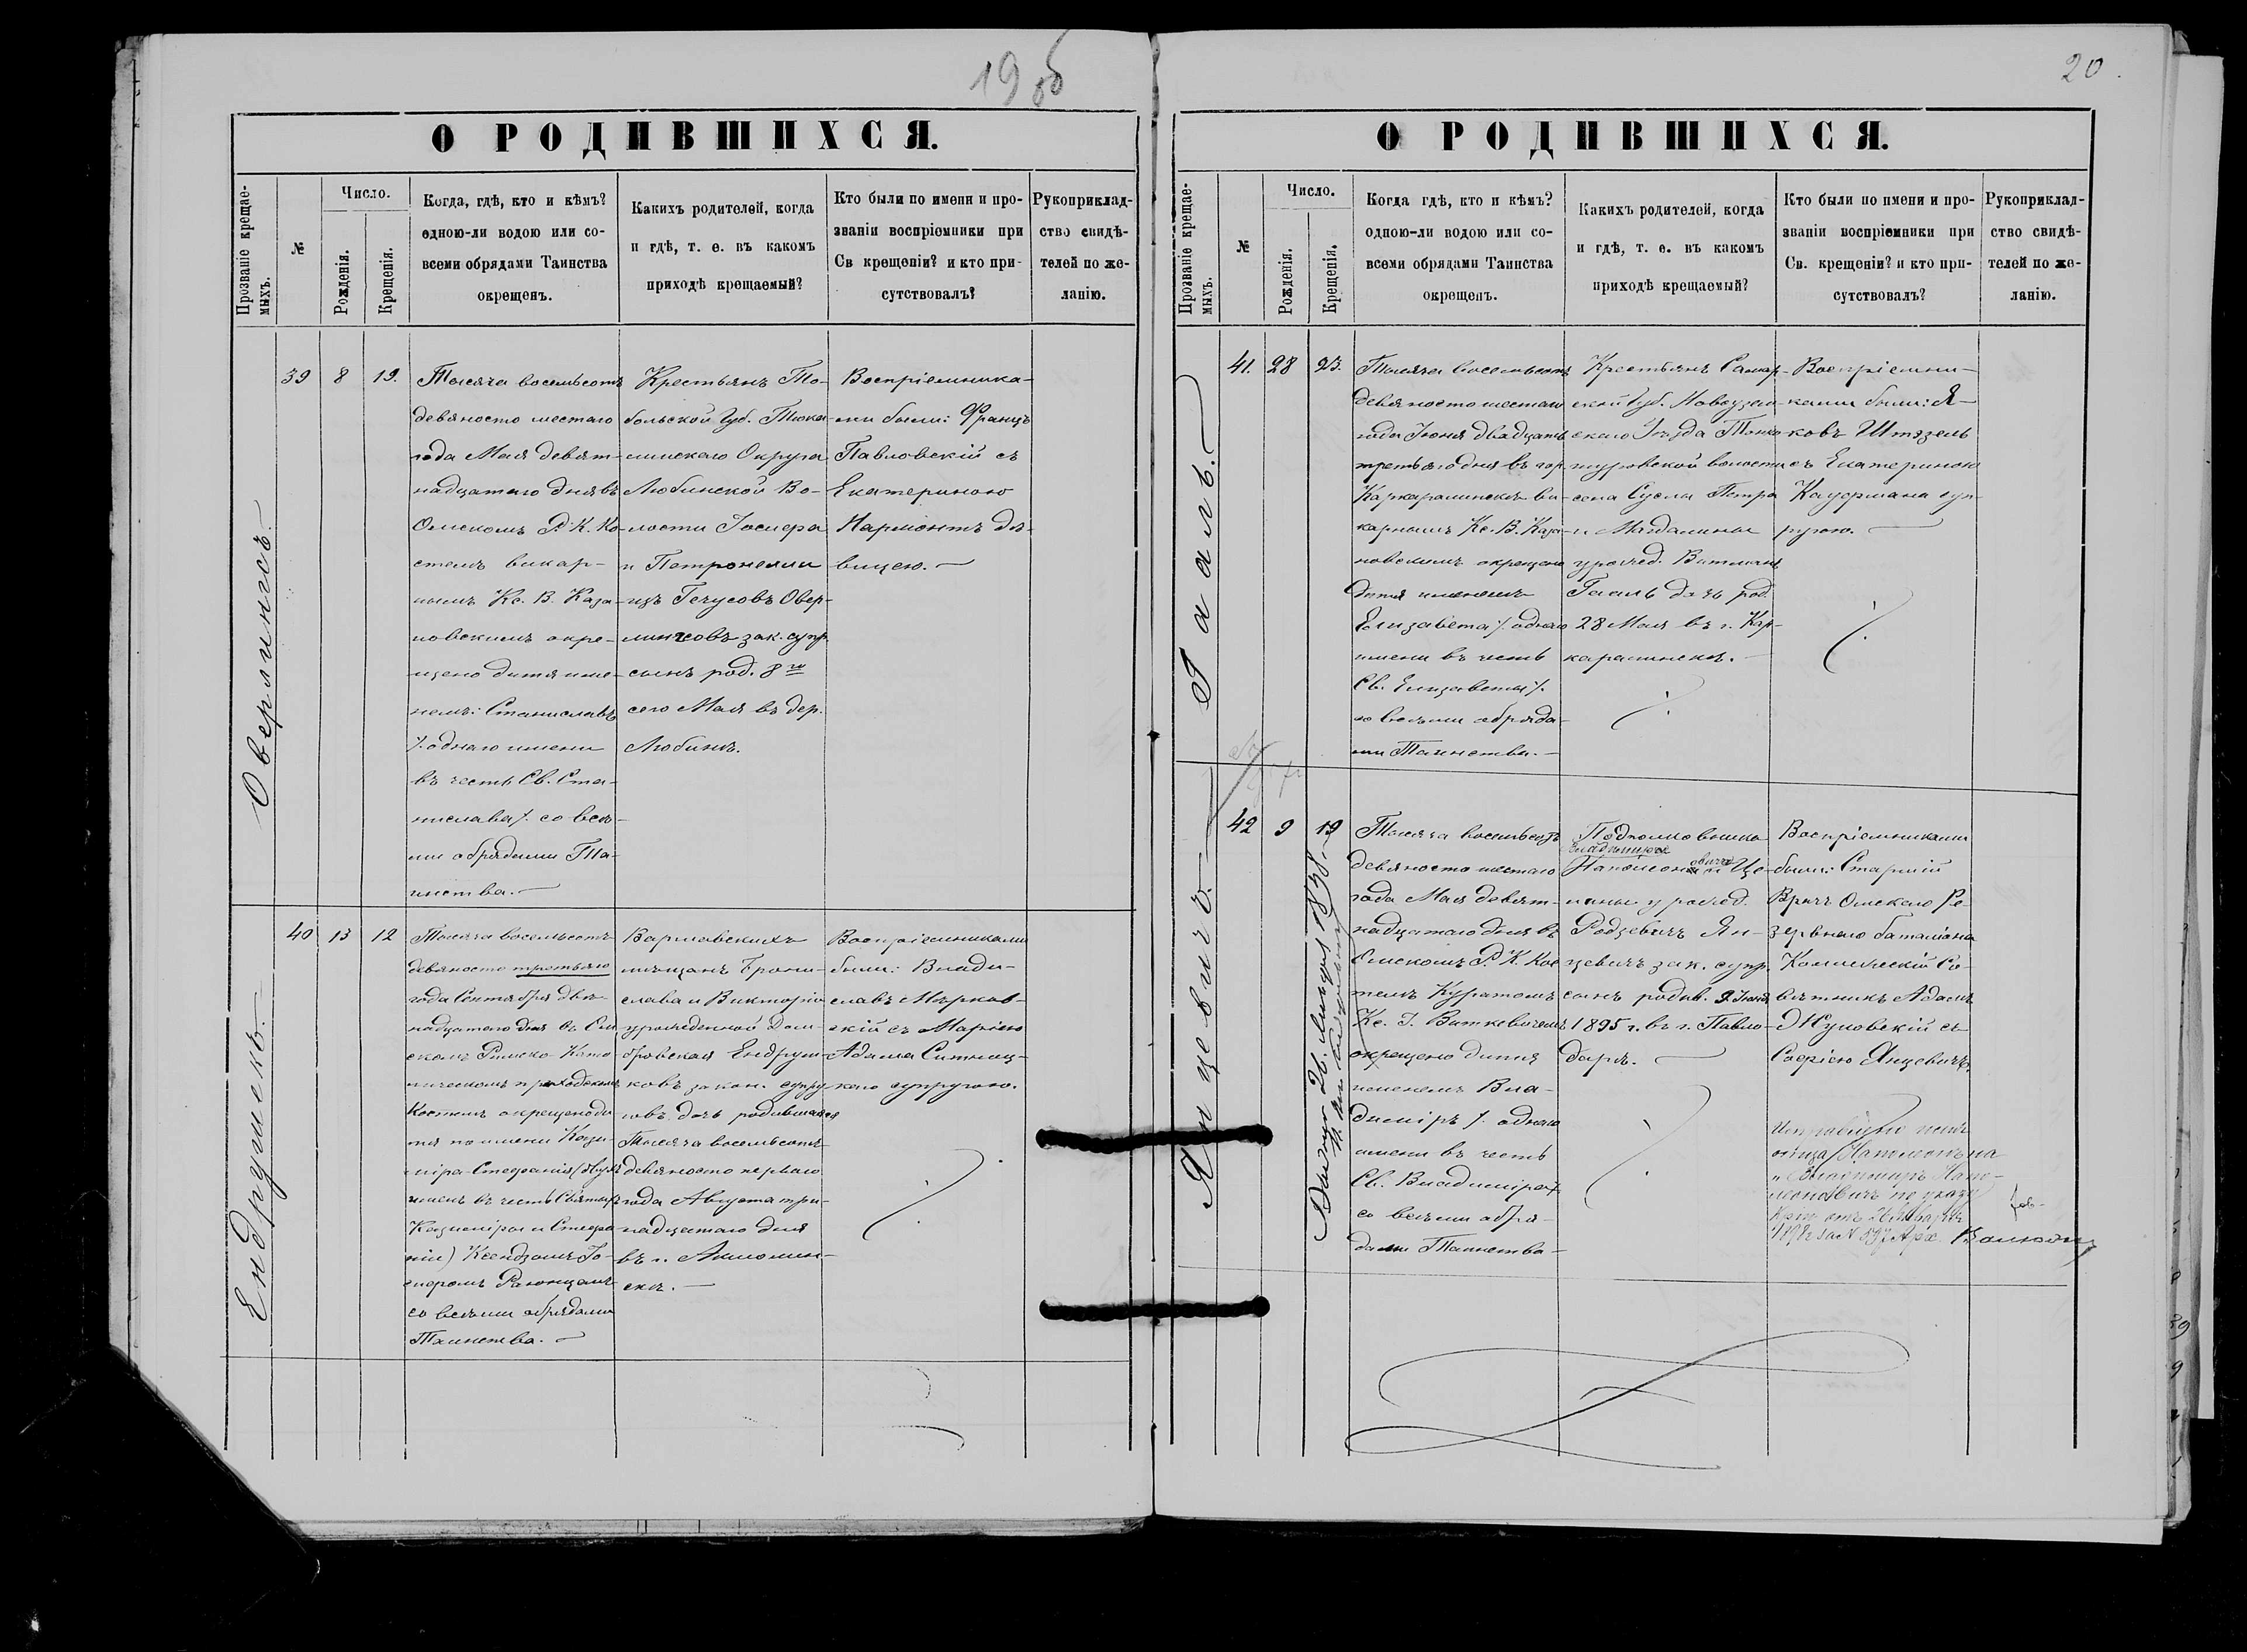 19 об
О РОДИВШИХСЯ.
Прозваніе крещае-
мыхъ.
№
Число.
Рожденія.
Крещенія.
Когда, гдѣ, кто и кѣмъ?
одною-ли водою или со-
всеми обрядами Таинства
окрещенъ.
Какихъ родителей, когда
и гдѣ, т. е. въ какомъ
приходѣ крещаемый?
Кто были по имени и про-
званіи воспріемники при
Св крещеніи? и кто при-
сутствовалъ?
Рукоприклад-
ство свидѣ-
телей по же-
ланію.
Оверлингсъ.
39
8
19.
Тысяча восемьсотъ
девяносто шестаго
года Мая девят-
надцатаго дня въ
Омскомъ Р. К. Ко-
стелѣ викар-
нымъ Кс. В. Каза-
новскимъ окре-
щено дитя име-
немъ: Станиславъ
/. однаго имени
въ честь Св. Ста-
нислава/. со всѣ-
ми обрядами Та-
инства.
Крестьянъ То-
больской Губ. Тюка-
линскаго Округа
Любинской Во-
лости
и Петронелли
изъ Овер-
лингсовъ зак. супр.
сынъ род. 8 го
сего Мая въ дер.
Любинѣ.
Воспріемника-
ми были: Францъ
Павловскій съ
Екатериною
Нармонтъ дѣ-
вицею.
Ендрушекъ.
40
13
12
Тысяча восемьсотъ
девяносто третьяго
года Сентября двѣ-
надцатаго дня въ Ом-
скомъ Римско-Като-
лическомъ приходскомъ
Костелѣ окрещено ди-
тя по имени Кази-
міра-Стефанія (двухъ
именъ въ честь Святыхъ
Казиміры и Стефа-
ніи) Ксендзомъ Іо-
со всѣми обрядами
Таинства.
Варшавскихъ
мѣщанъ Брони-
слава и Викторіи
урожденной Дом-
бровская Ендруш-
ковъ закон. супру-
говъ дочь родившаяся
Тысяча восемьсотъ
девяносто перваго
года Августа три-
надцатаго дня
въ г. Акмолин-
скѣ.
Воспріемниками
были: Влади-
славъ Марков-
скій съ Маріею
Адама Ситниц-
каго супругою.
20.
О РОДИВШИХСЯ.
Прозваніе крещае-
мыхъ.
№
Число.
Рожденія.
Крещенія.
Когда гдѣ, кто и кѣмъ?
одною-ли водою или со-
всеми обрядами Таинства
окрещенъ.
Какихъ родителей, когда
и гдѣ, т. е. въ какомъ
приходѣ крещаемый?
Кто были по имени и про-
званіи воспріемники при
Св. крещеніи? и кто при-
сутствовалъ?
Рукоприклад-
ство свидѣ-
телей по же-
ланію.
Гааль.
41.
28
23.
Тысяча восемьсотъ
девяносто шестаго
года Іюня двадцать
третьяго дня въ гор.
Каркаралинскѣ ви-
карнымъ Кс. В. Каза-
новскимъ окрещено
дитя именемъ
Елизавета /. однаго
имени въ честь
Св. Елизаветы /.
со всѣми обряда-
ми Таинства.
Крестьянъ Самар-
ской Губ. Новоузен-
скаго Уѣзда Тонко-
шуровской волости
села Суслы Петра
и Магдалины
урожд. Витманъ
Гааль дочь род.
28 Мая въ г. Кар-
каралинскѣ.
Воспріемни-
ками были: Я-
ковъ Штэзель
съ Екатериною
Кауфмана суп-
ругою.
Янцевичъ.
42
9
19
Тысяча восемьсотъ
девяносто шестаго
года Мая девят-
надцатаго дня въ
Омскомъ Р. К. Кос-
телѣ Куратомъ
Кс. І. Виткевичемъ
окрещено дитя
именемъ Вла-
диміръ /. однаго
имени въ честь
Св. Владиміра/.
со всѣми обря-
дами Таинства
Подполковника
Владиміра
Наполеоновича и Це-
лины урожд.
Родзевичъ Ян-
цевичъ зак. супр.
сынъ родив. 9 Іюня
1895 г. въ г. Павло-
дарѣ.
Воспріемниками
были: Старшій
Врачъ Омскаго Ре-
зервнаго баталіона
Коллежскій Со-
вѣтникъ Адамъ
Жуковскій съ
Софіею Янцевичъ.
отца Наполеона на
„Владиміръ Напо-
леоновичъ по указу